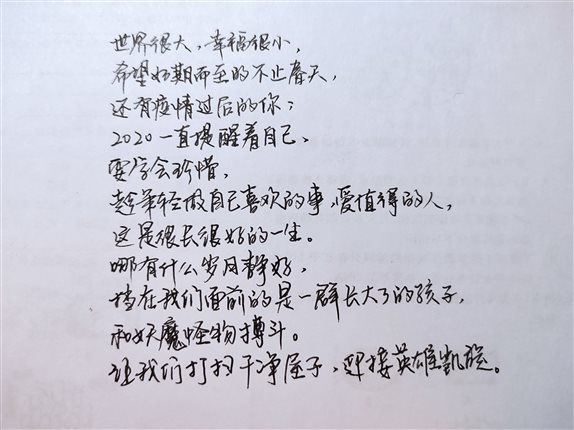 世界很大，幸福很小，
希望如期而至的不止春天，
还有疫情过后的你；
2020一直提醒着自己、
要学会珍惜，
趁年轻做自己喜欢的事，爱值得的人，
这是很长很好的一生。
哪有什么岁月静好，
挡在我们面前的是一群长大了的孩子，
和妖魔怪物搏斗。
让我们打扫干净屋子，迎接英雄凯旋。